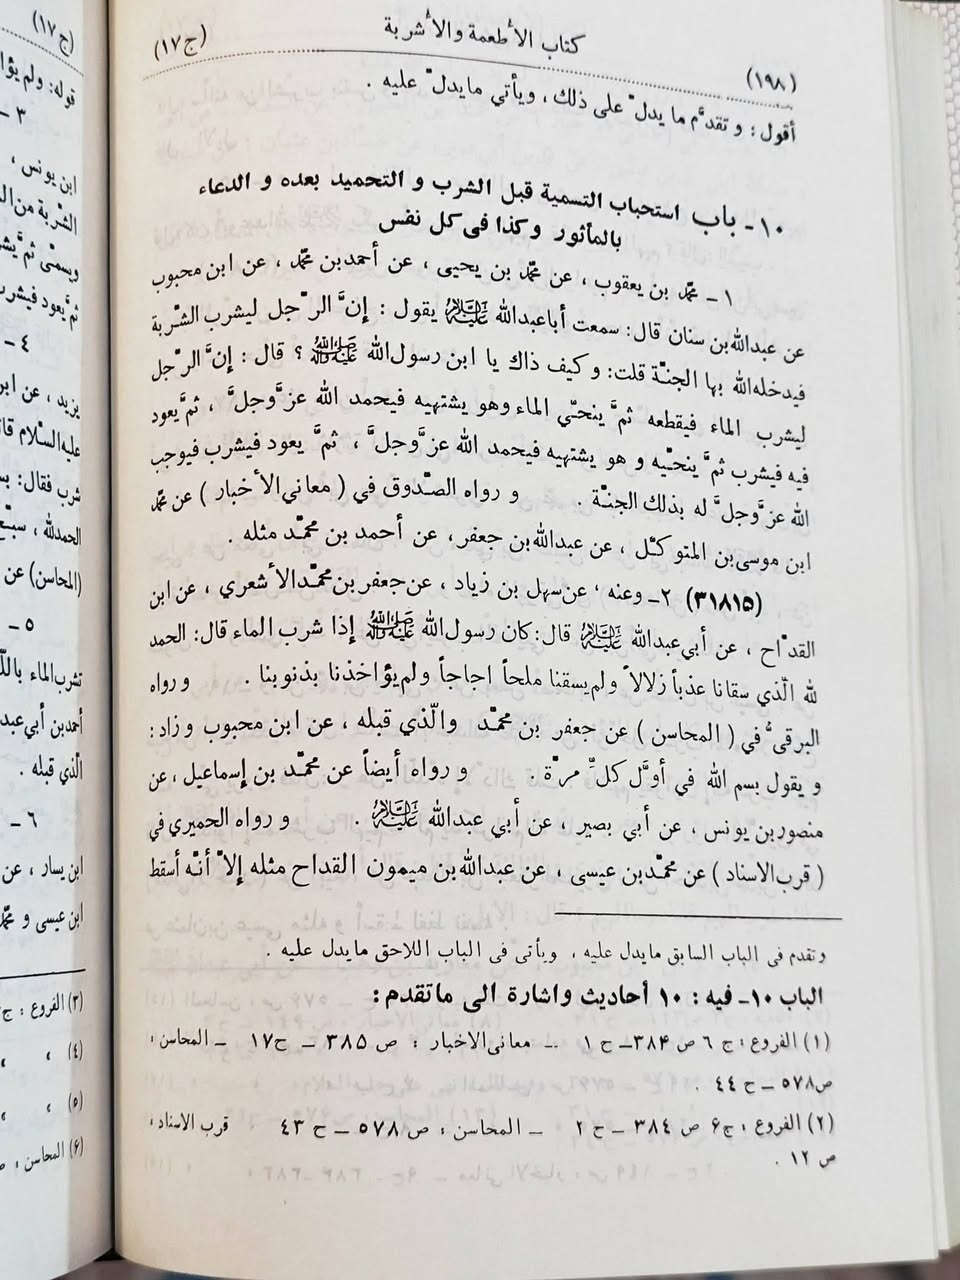 (١٩٨) كتاب الأطعمة والأشربة (ج١٧)
أقول : و تقدَّم ما يدلّ على ذلك ، ويأتي مايدلّ عليه .
١٠ - باب استحباب التسمية قبل الشرب و التحميد بعده و الدعاء
بالمأثور وكذا فى كل نفس
١ - محمّد بن يعقوب ، عن محمّد بن يحيى ، عن أحمدبن محمّد ، عن ابن محبوب
عن عبدالله‌بن سنان قال: سمعت أباعبدالله عليه‌السلام يقول : إنَّ الرّجل ليشرب الشّربة
فيدخله‌الله بها الجنّة قلت: و كيف ذاك يا ابن رسول‌الله صلى‌الله‌عليه‌وآله ؟ قال : إنَّ الرّجل
ليشرب الماء فيقطعه ثمَّ ينحّي الماء وهو يشتهيه فيحمد الله عزَّوجلَّ ، ثمَّ يعود
فيه فيشرب ثمَّ ينحّيه و هو يشتهيه فيحمد الله عزَّوجلَّ ، ثمَّ يعود فيشرب فيوجب
الله عزَّوجلَّ له بذلك الجنّة . و رواه الصّدوق في ( معاني‌الأخبار ) عن محمّد
ابن موسى‌بن المتوكّل ، عن عبدالله‌بن جعفر، عن أحمد بن محمّد مثله .
(٣١٨١٥) ٢ـ وعنه ، عن‌سهل بن زياد ، عن‌جعفر بن‌محمّدالأشعري ، عن ابن
القدّاح ، عن أبي‌عبدالله عليه‌السلام قال: كان رسول‌الله صلى‌الله‌عليه‌وآله إذا شرب الماء قال: الحمد
لله الّذي سقانا عذباً زلالاً ولم‌يسقنا ملحاً اجاجاً ولم‌يؤاخذنا بذنوبنا . و رواه
البرقيُّ في ( المحاسن ) عن جعفر بن محمّد والّذي قبله ، عن ابن محبوب و زاد :
و يقول بسم الله في أوَّل كلِّ مرّة . و رواه أيضاً عن محمّد بن إسماعيل ، عن
منصوربن يونس ، عن أبي بصير ، عن أبي عبدالله عليه‌السلام . و رواه الحميري في
( قرب‌الاسناد ) عن محمّدبن عيسى ، عن عبدالله‌بن ميمون القداح مثله إلاّ أنّه أسقط
وتقدم فى الباب السابق مايدل عليه ، ويأتى فى الباب اللاحق مايدل عليه .
الباب ١٠- فيه : ١٠ أحاديث واشارة الى ماتقدم :
(١) الفروع : ج ۶ ص ٣٨۴ـ ح ١ ـ معانى‌الاخبار : ص ٣٨۵ ـ ح١٧ ـ المحاسن :
ص۵٧٨ ـ ح ۴۴ .
(٢) الفروع : ج۶ ص ٣٨۴ ـ ح ٢ ـ المحاسن : ص ۵٧٨ ـ ح ۴٣ قرب الاسناد :
ص ١٢ .
(ج١٧)
٣ ـ
ابن يونس ،
٤ ـ
يزيد ، عن ابن
شرب فقال: بس
(المحاسن) عن
٥ ـ
الّذي قبله .
٦ ـ
ابن يسار ، عن
(٣) الفروع : ج
(۴) ، ،
(۵) ، ،
(۶) المحاسن : ص